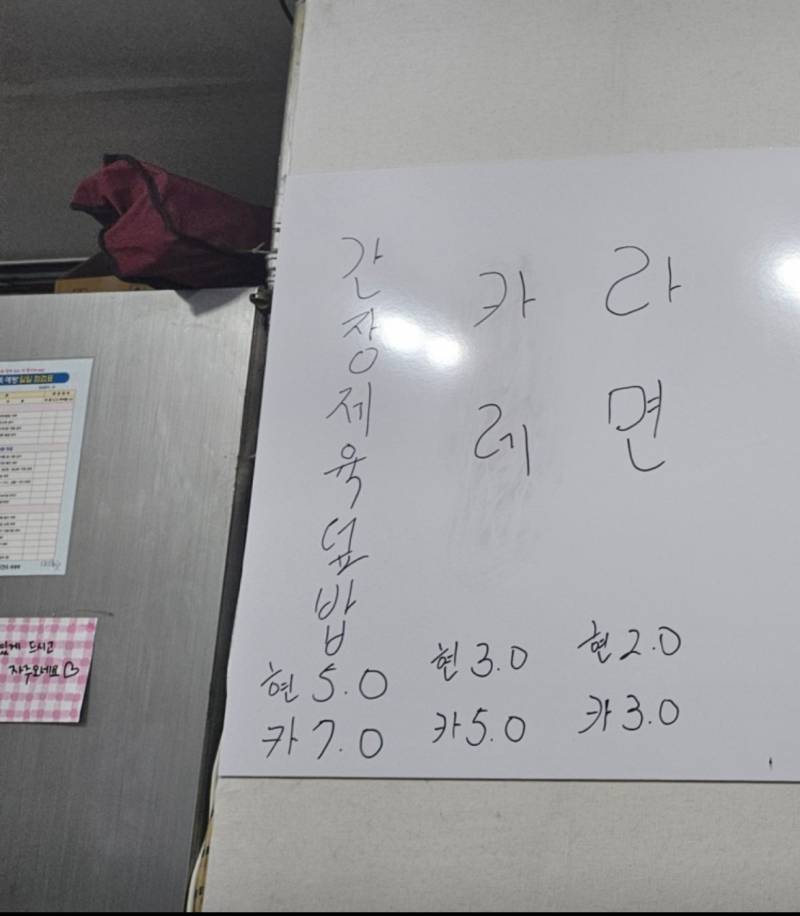 간장제육덮밥
현 5.0
카 7.0
카레
현 3.0
카 5.0
라면
현 2.0
카 3.0
일일 점검표
있게 드시고
자주오세요♡